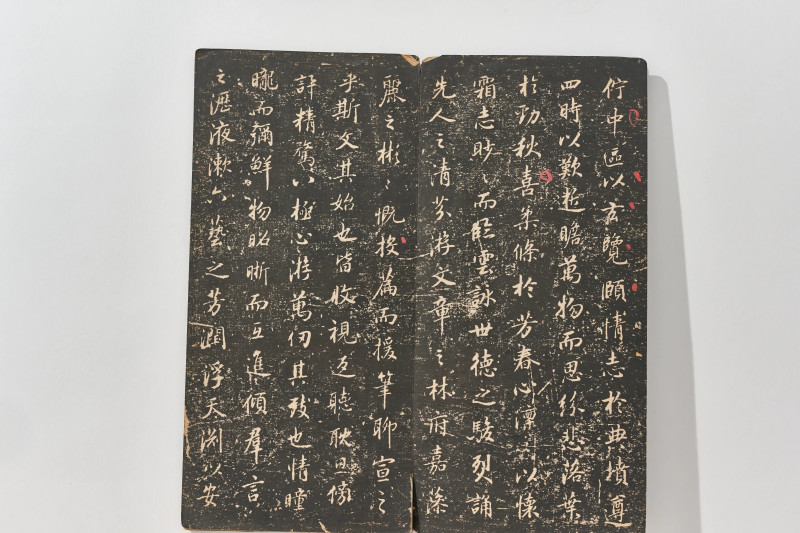 佇中區以玄覽頤情志於典墳遵
四時以歎逝瞻萬物而思紛悲落葉
於勁秋喜柔條於芳春心凜〻以懷
霜志眇〻而臨雲詠世德之駿烈誦
先人之清芬游文章之林府嘉藻
麗之彬〻慨投篇而援筆聊宣之
乎斯文其始也皆收視返聽耽思傍
訊精騖八極心游萬仞其致也情曈
曨而彌鮮物昭晰而互進傾羣言
之瀝液漱六藝之芳潤浮天淵以安